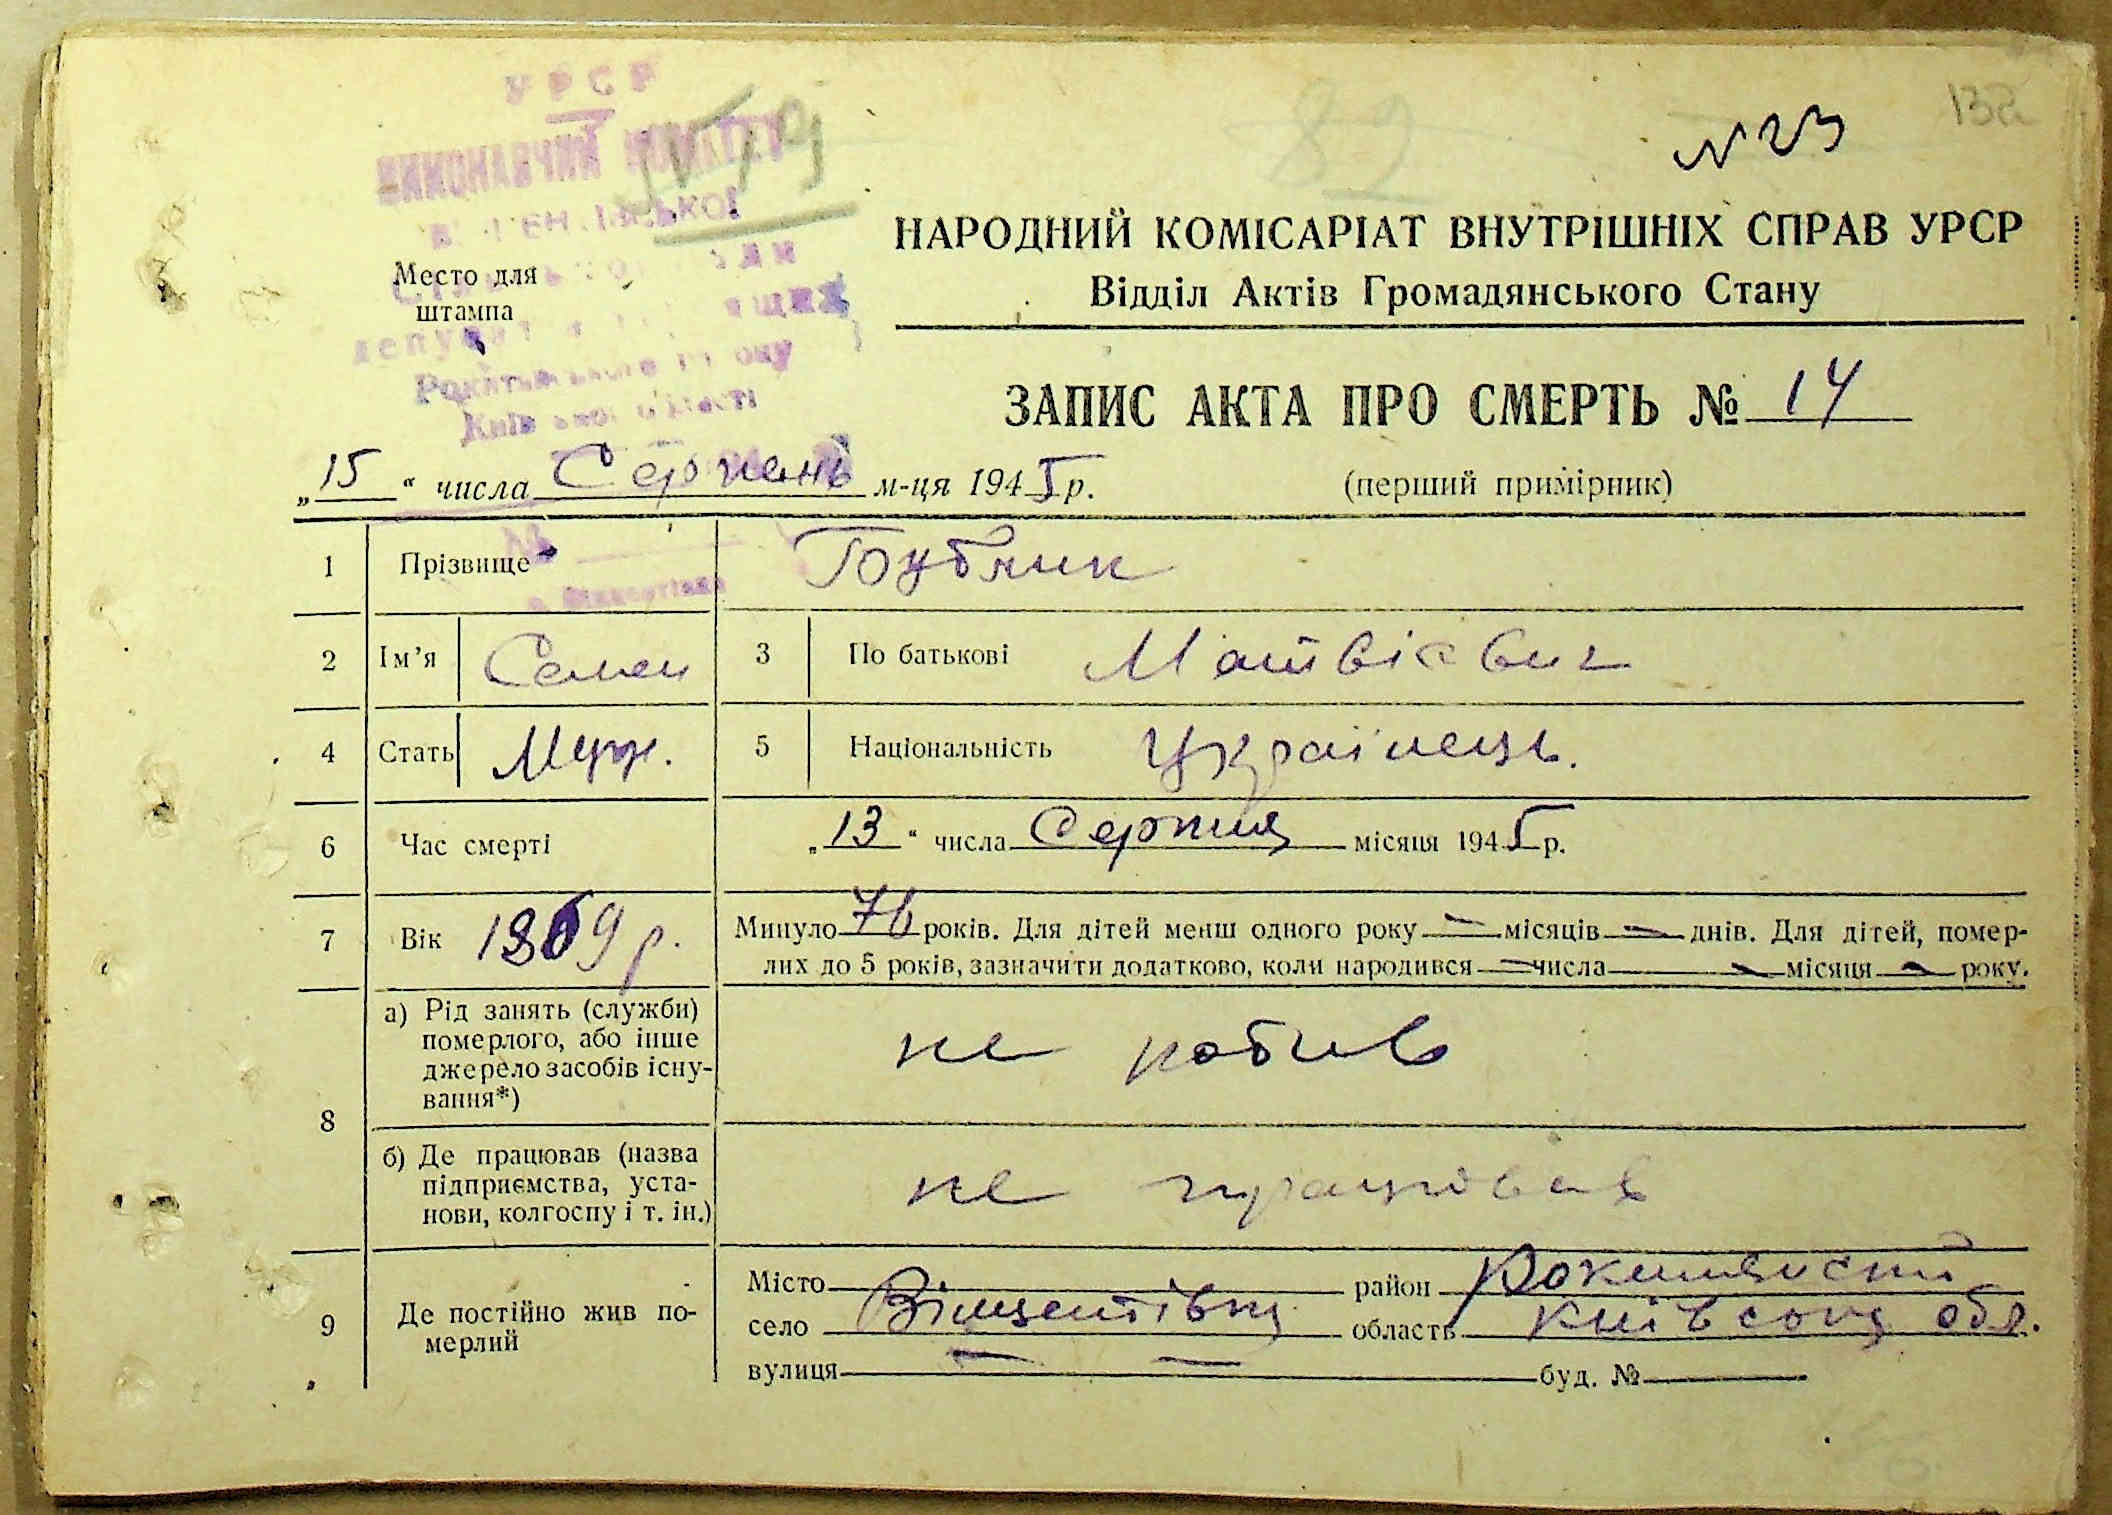 УРСР
ВИКОНАВЧИЙ КОМІТЕТ
Київської області
№23
132
82
Место для
штампа
НАРОДНИЙ КОМІСАРІАТ ВНУТРІШНІХ СПРАВ УРСР
Відділ Актів Громадянського Стану
ЗАПИС АКТА ПРО СМЕРТЬ № 14
„15“ числа Серпень м-ця 1945 р.
(перший примірник)
1 Прізвище Бублик
2 Ім’я Семен 3 По батькові Матвієвич
4 Стать Муж. 5 Національність Українець.
6 Час смерті „13“ числа Серпня місяця 1945 р.
7 Вік 1869 р. Минуло 76 років. Для дітей менш одного року — місяців — днів. Для дітей, помер-
лих до 5 років, зазначити додатково, коли народився — числа — місяця — року.
8 а) Рід занять (служби)
померлого, або інше
джерело засобів існу-
вання*)
не робив
б) Де працював (назва
підприємства, уста-
нови, колгоспу і т. ін.)
не працював
9 Де постійно жив по-
мерлий
Місто район Рокитянський
село Вінцентівка область Київсона обл.
вулиця — — буд. №